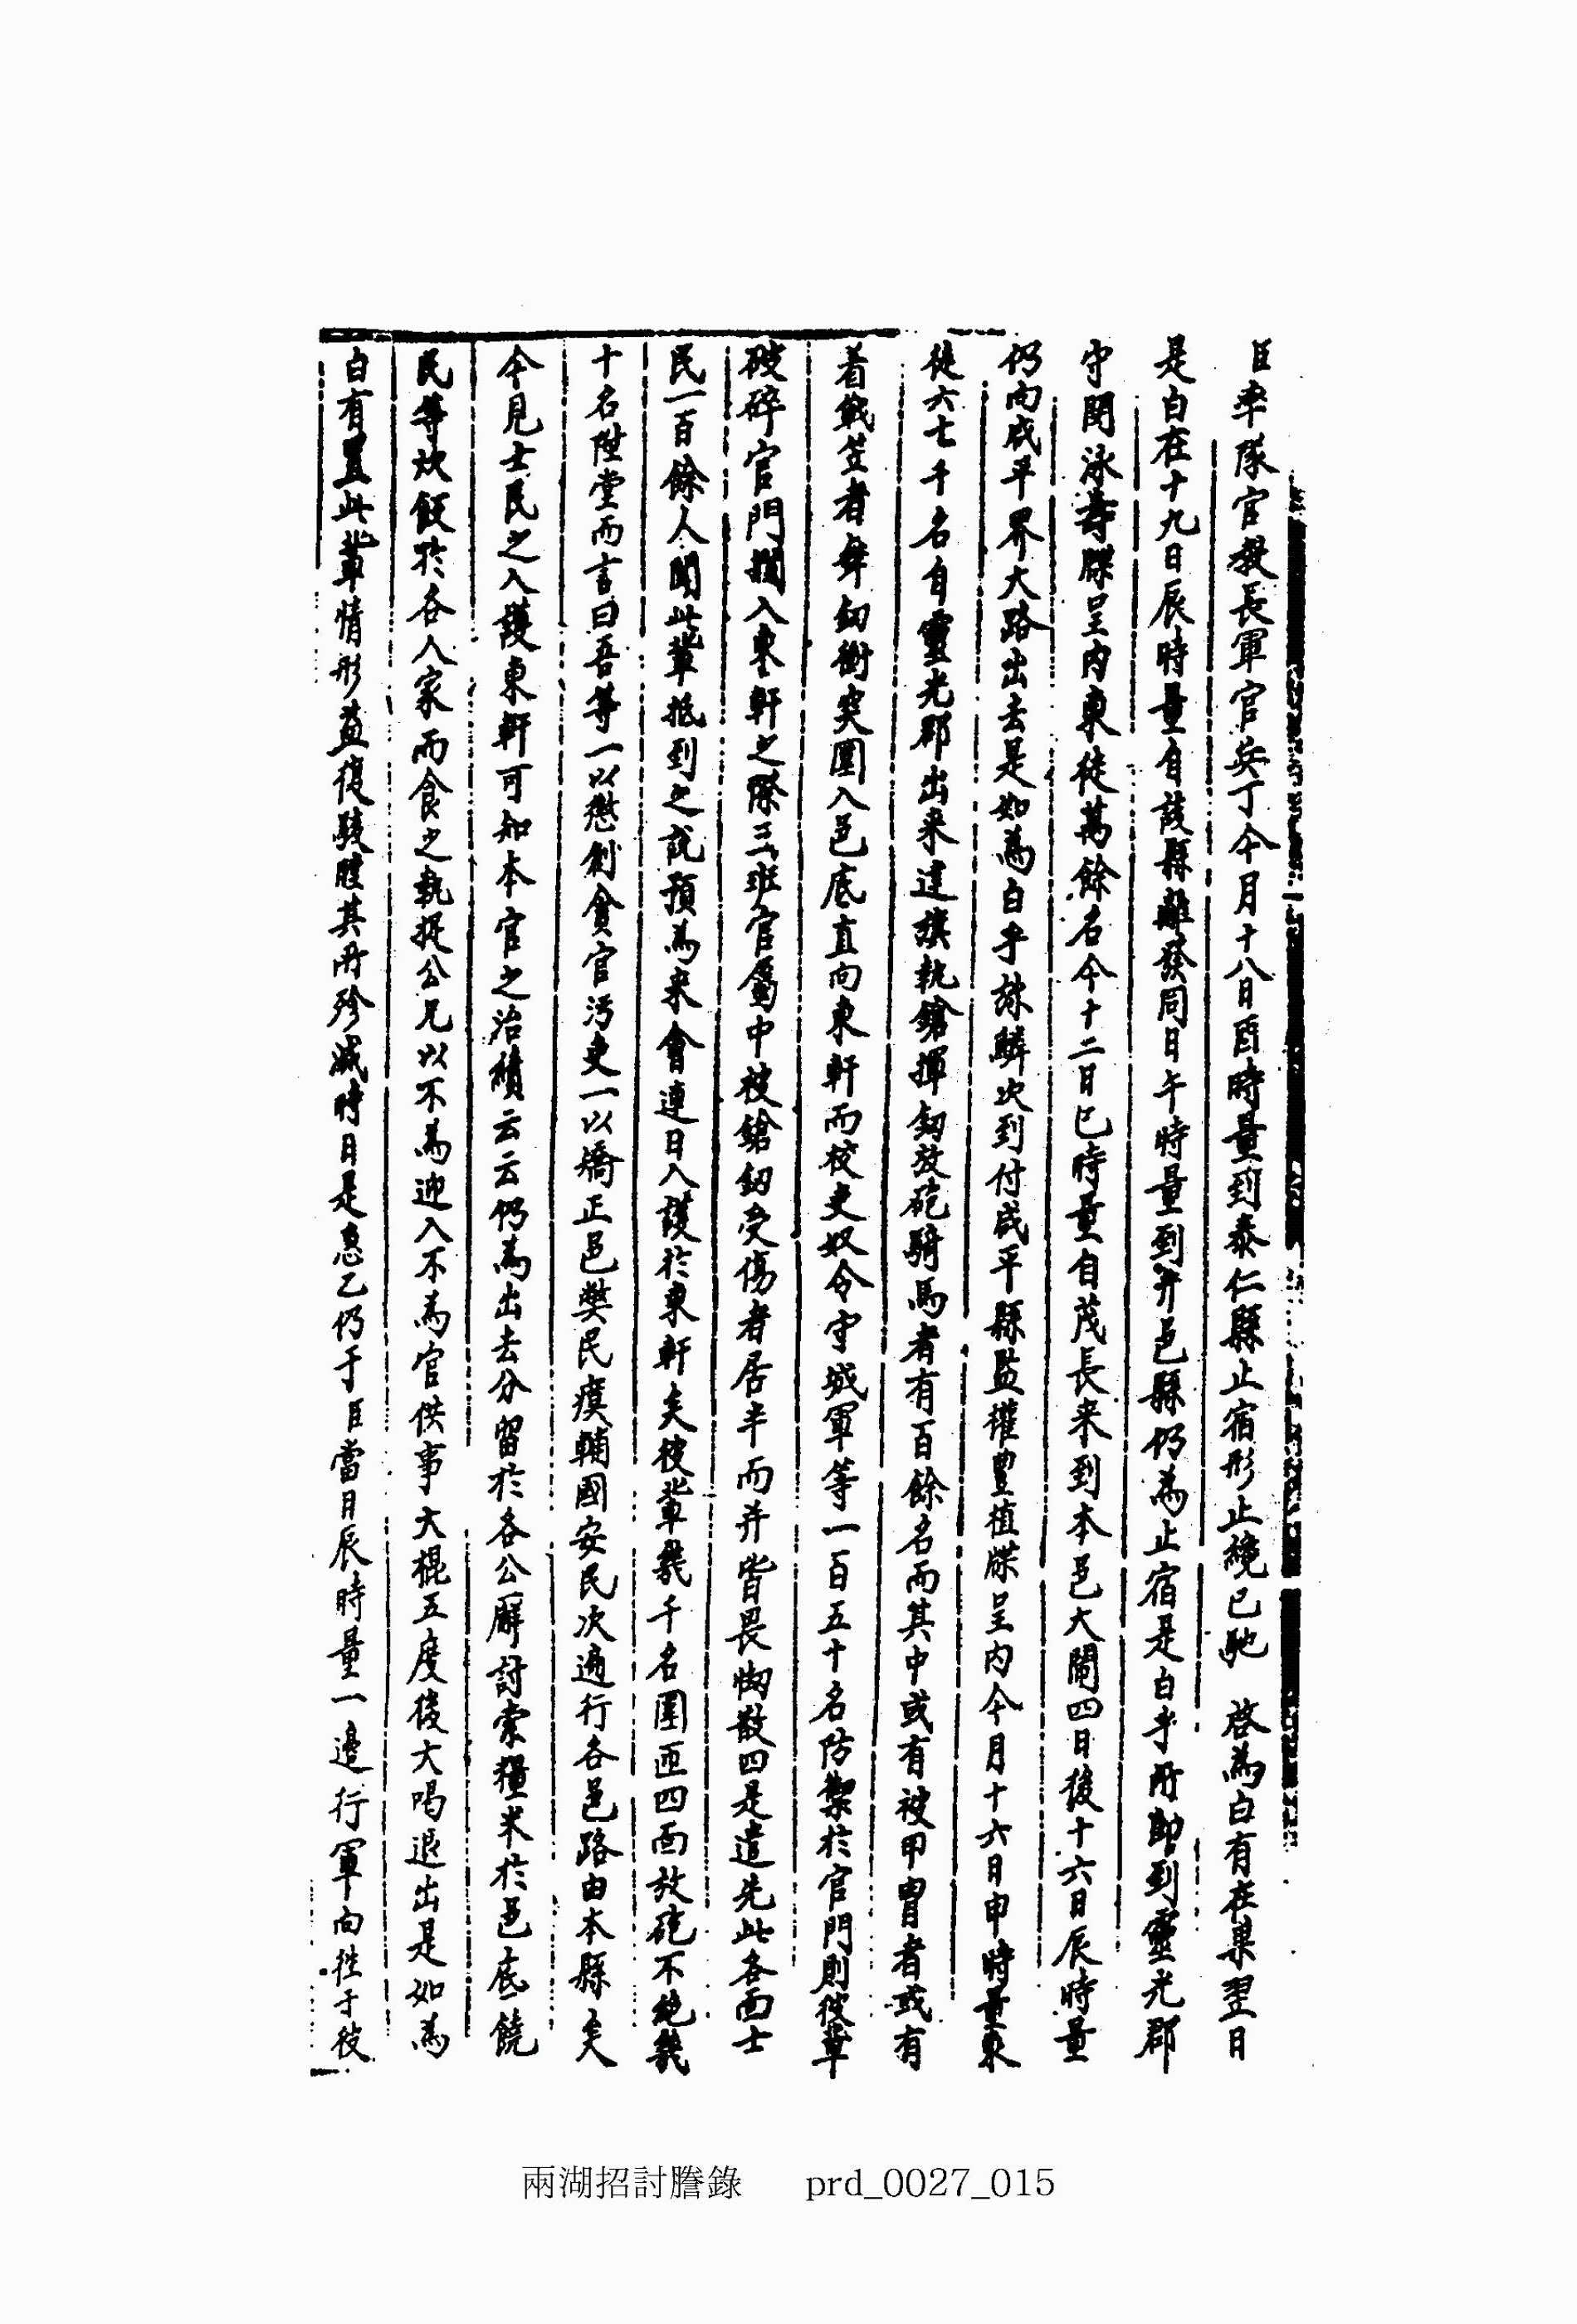 臣率隊官敎長軍官兵丁今月十八日酉時量到泰仁縣止宿形止纔已馳　啓爲白有在果翌日
是白在十九日辰時量自該縣離發同日午時量到井邑縣仍爲止宿是白乎所卽到靈光郡
守閔泳壽牒呈內東徒萬餘名今十二日巳時量自茂長來到本邑大鬧四日後十六日辰時量
仍向咸平界大路出去是如爲白乎旀鱗次到付咸平縣監權豊植牒呈內今月十六日申時量東
徒六七千名自靈光郡出來建旗執鎗揮釰放砲騎馬者有百餘名而其中或有被甲冑者或有
着戰笠者舞釰衝突圍入邑底直向東軒而校吏奴令守城軍等一百五十名防禦於官門則彼輩
破碎官門攔入東軒之際三班官屬中被鎗釰受傷者居半而并皆畏㥘散四是遣先此各面士
民一百餘人聞此輩抵到之說預爲來會連日入護於東軒矣彼輩幾千名圍匝四面放砲不絶幾
十名陞堂而言曰吾等一以懲創貪官汚吏一以矯正邑弊民瘼輔國安民次過行各邑路由本縣矣
今見士民之入護東軒可知本官之治績云云仍爲出去分留於各公廨討索糧米於邑底饒
民等炊飯於各人家而食之執捉公兄以不爲迎入不爲官供事大棍五度後大喝退出是如爲
白有置此輩情形益復駭腟其所殄滅時日是急乙仍于臣當日辰時量一邊行軍向往于彼
兩湖招討謄錄　prd_0027_015